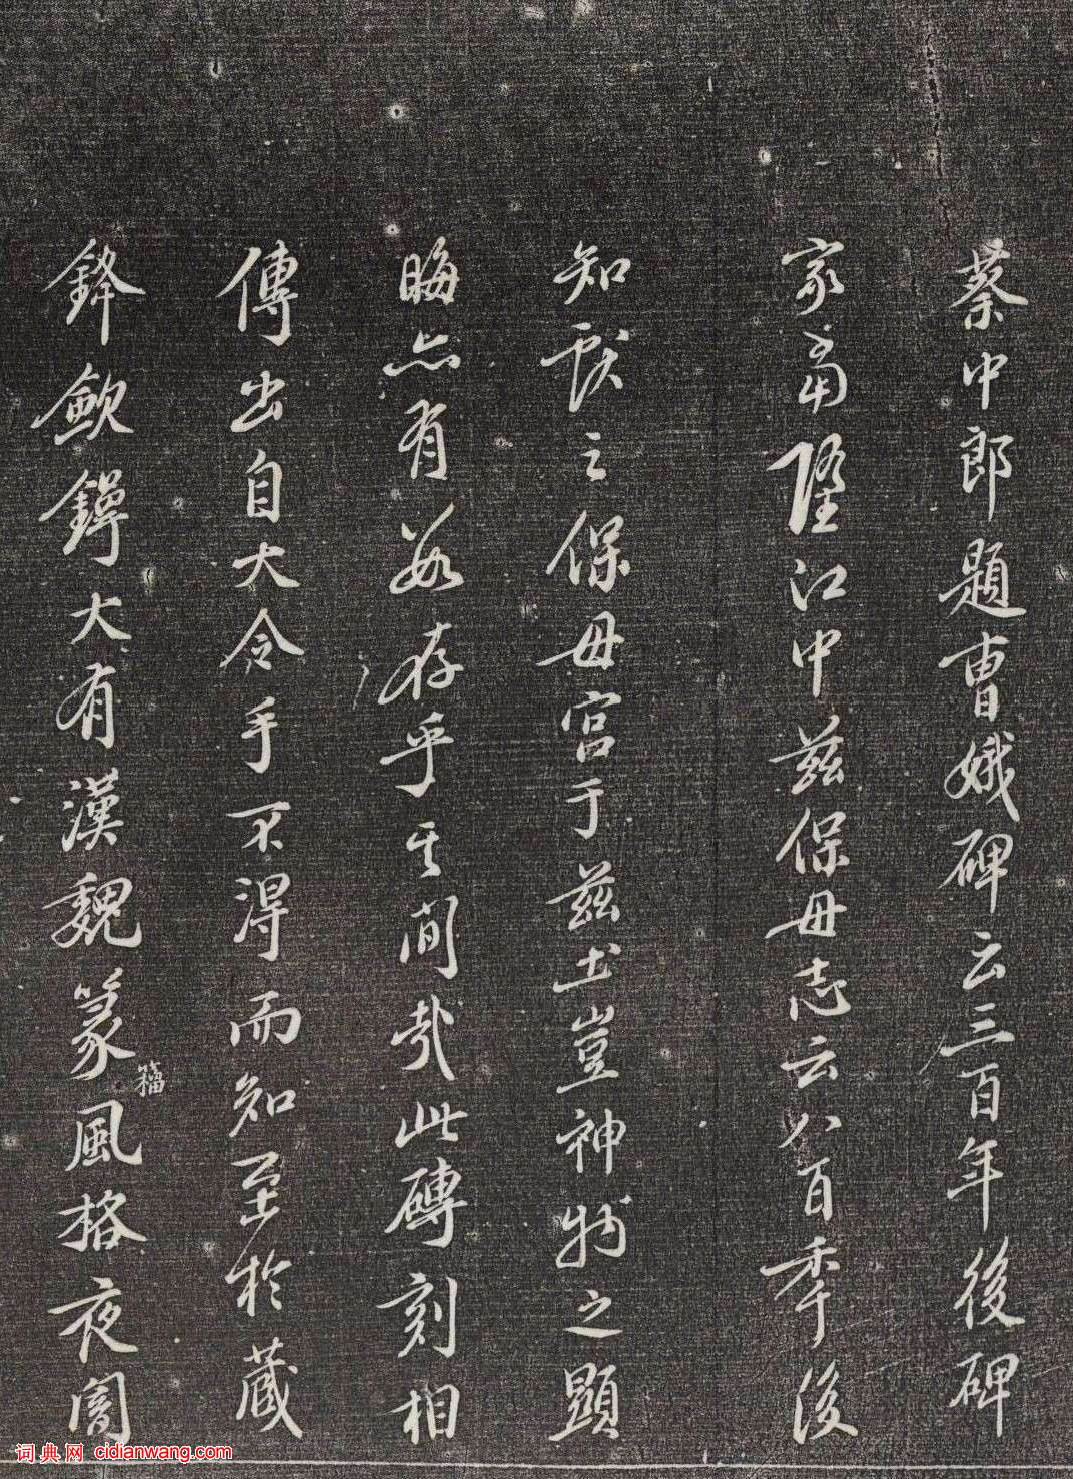 蔡中郎題曹娥碑云三百年後碑
冢當墮江中茲保母志云八百季後
知獻之保母宮于茲土豈神物之顯
晦亦有數存乎其間哉此磚刻相
傳出自大令手不得而知至於藏
鋒斂鍔大有漢魏篆籀風格夜窗
词典网 cidianwang.com